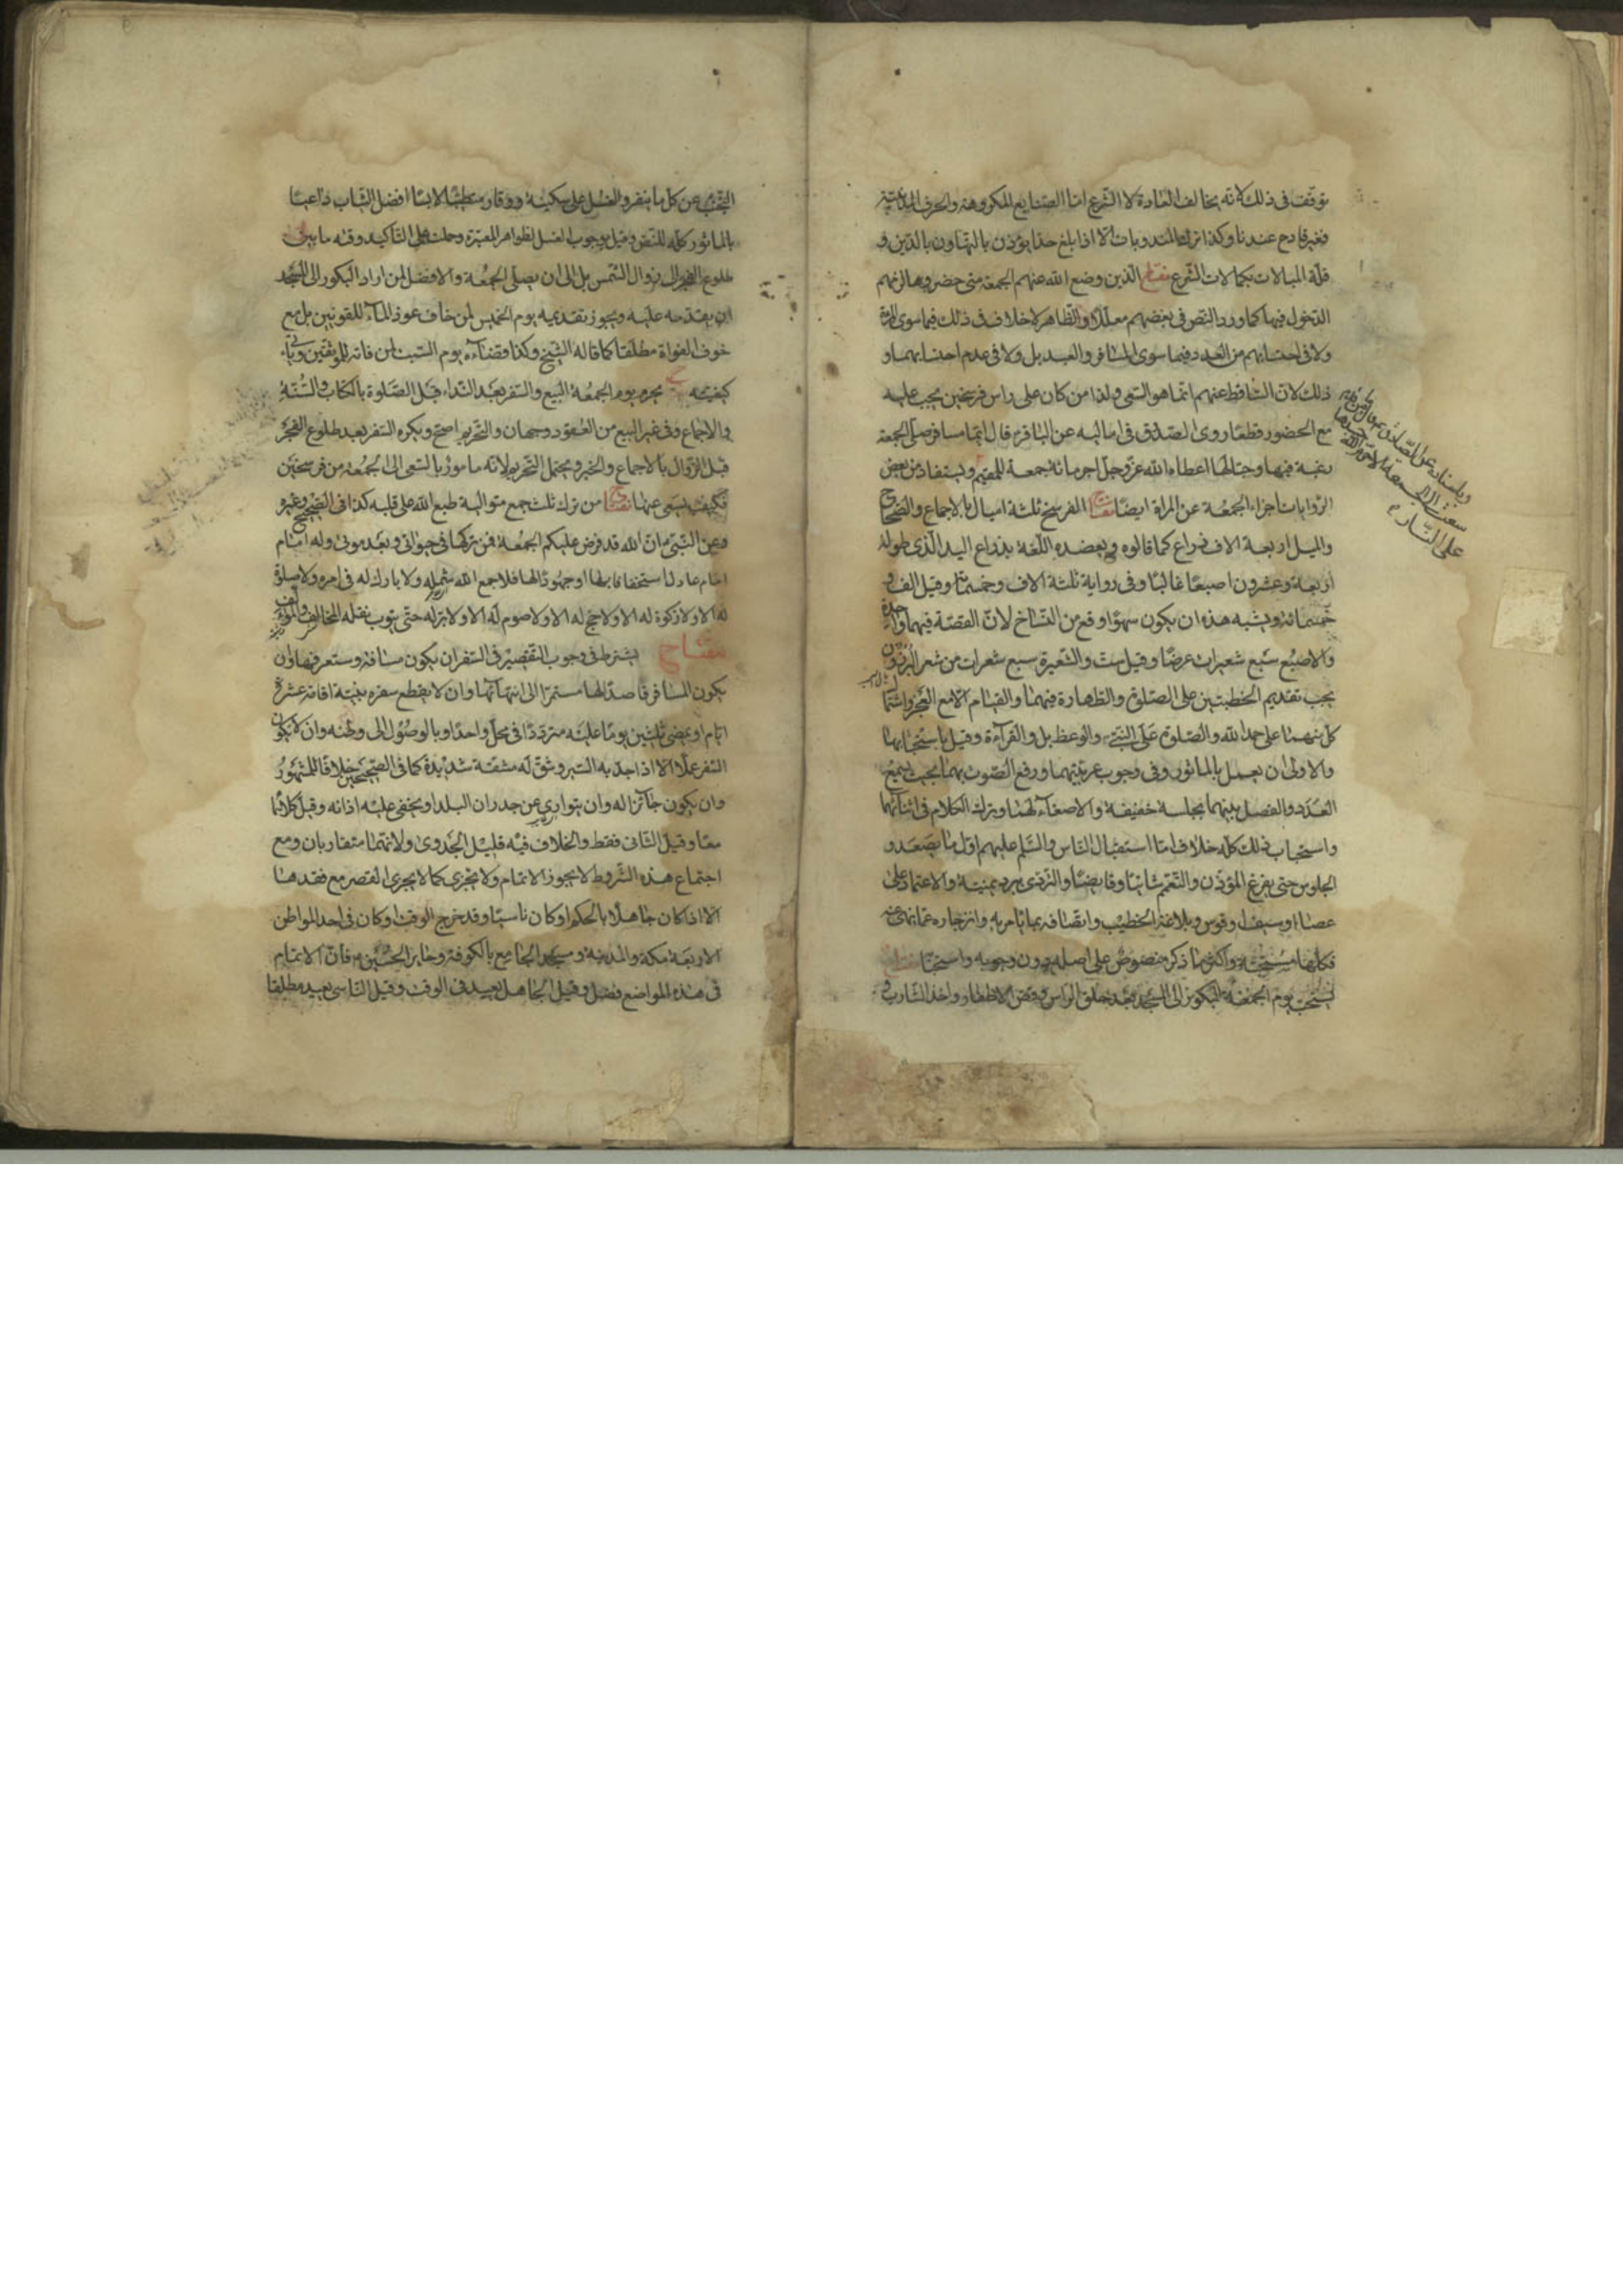 توقف فى ذلك لانه يخالف العادة لا الشرع اما الصنايع المكروهة والحرف الدنية
فغير قادح عندنا وكذا ترك المندوبات الا اذا بلغ حدا يؤذن بالتهاون بالدين و
قلة المبالات بكمالات الشرع مفتاح الذين وضع الله عنهم الجمعة متى حضروها لزمهم
الدخول فيها كما ورد النص فى بعضهم معللا والظاهر لا خلاف فى ذلك فيما سوى المراة
ولا فى احتسابهم من العدد فيما سوى المسافر والعبد بل ولا فى عدم احتسابهما و
ذلك لان الساقط عنهم انما هو السعى ولذا من كان على راس فرسخين يجب عليه
مع الحضور قطعا روى الصدوق فى اماليه عن الباقر قال ايما مسافر صلى الجمعة
رغبة فيها وحبا لها اعطاه الله عز وجل اجر مائة جمعة للمقيم ويستفاد من بعض
الروايات اجزاء الجمعة عن المراة ايضا مفتاح الفرسخ ثلثة اميال بالاجماع والصحاح
والميل اربعة الاف ذراع كما قالوه ويعضده اللغة بذراع اليد الذى طوله
اربعة وعشرون اصبعا غالبا وفى رواية ثلثة الاف وخمسمائة وقيل الف و
خمسمائة ويشبه هذه ان يكون سهوا وقع من النساخ لان القصة فيهما واحدة
والاصبع سبع شعيرات عرضا وقيل ست والشعيرة سبع شعرات من شعر البرذون
يجب تقديم الخطبتين على الصلوة والطهارة فيهما والقيام الا مع العجز واشتمال
كل منهما على حمد الله والصلوة على النبى والوعظ بل والقرآءة وقيل باستحبابها
والاولى ان يعمل بالماثور وفى وجوب عربيتهما ورفع الصوت بهما بحيث يسمع
العدد والفصل بينهما بجلسة خفيفة والاصغآء لهما وترك الكلام فى اثنائهما
واستحباب ذلك كله خلاف اما استقبال الناس والسلم عليهم اول ما يصعد و
الجلوس حتى يفرغ المؤذن والتعمم شاتيا وقايضا والتردى ببرد يمنية والاعتماد على
عصا او سيف او قوس وبلاغة الخطيب واتصافه بما يامر به وانزجاره عما ينهى عنه
فكلها مستحبة واكثر ما ذكر منصوص على اصله دون وجوبه واستحبابه مفتاح
يستحب يوم الجمعة البكور الى المسجد بعد حلق الراس وقص الاظفار واخذ الشارب و
وباسناده عن الصادق
على النار
التجنب عن كل ما ينفر والغسل على سكينة ووقار متطيبا لابسا افضل الثياب داعيا
بالماثور كله للنص وقيل بوجوب الغسل لظواهر المعتبرة وحملت على التاكيد وقته ما بين
طلوع الفجر الى زوال الشمس بل الى ان يصلى الجمعة والافضل لمن اراد البكور الى المسجد
ان يقدمه عليه ويجوز تقديمه يوم الخميس لمن خاف عوز المآء للقويين بل مع
خوف الفوات مطلقا كما قاله الشيخ وكذا قضاؤه يوم السبت لمن فاته للموثقين وياتى
كيفيته يحرم يوم الجمعة البيع والسفر بعد النداء قبل الصلوة بالكتاب والسنة
والاجماع وفى غير البيع من العقود وجهان والتحريم اصح ويكره السفر بعد طلوع الفجر
قبل الزوال بالاجماع والخبر ويحتمل التحريم لانه مامور بالسعى الى الجمعة من فرسخين
فكيف يسعى عنها مفتاح من ترك ثلث جمع متوالية طبع الله على قلبه كذا فى الصحيح وغيره
وعن النبى ان الله قد فرض عليكم الجمعة فمن تركها فى حيوتى وبعد موتى وله امام
امام عادل استخفافا بها او جحودا لها فلا جمع الله شمله ولا بارك له فى امره ولا صلوة
له الا ولا زكوة له الا ولا حج له الا ولا صوم له الا ولا بر له حتى يتوب نقله المخالف والمؤالف
مفتاح يشترط فى وجوب التقصير فى السفر ان يكون مسافة وستعرفها وان
يكون المسافر قاصدا لها مستمرا الى انتهائها وان لا يقطع سفره بنية اقامة عشرة
ايام او بمضى ثلثين يوما عليه مترددا فى محل واحد او بالوصول الى وطنه وان لا يكون
السفر عملا الا اذا جد به السير وشق له مشقة شديدة كما فى الصحيحين خلافا للمشهور
وان يكون جآئزا له وان يتوارى عن جدران البلد او يخفى عليه اذانه وقيل كلاهما
معا وقيل الثانى فقط والخلاف فيه قليل الجدوى ولانهما متقاربان ومع
اجتماع هذه الشروط لا يجوز الاتمام ولا يجزى كما لا يجزى القصر مع فقدها
الا اذا كان جاهلا بالحكم او كان ناسيا وقد خرج الوقت او كان فى احد المواطن
الاربعة مكة والمدينة ومسجد الجامع بالكوفة وحاير الحسين فان الاتمام
فى هذه المواضع فضل وقيل الجاهل يعيد فى الوقت وقيل الناسى يعيد مطلقا